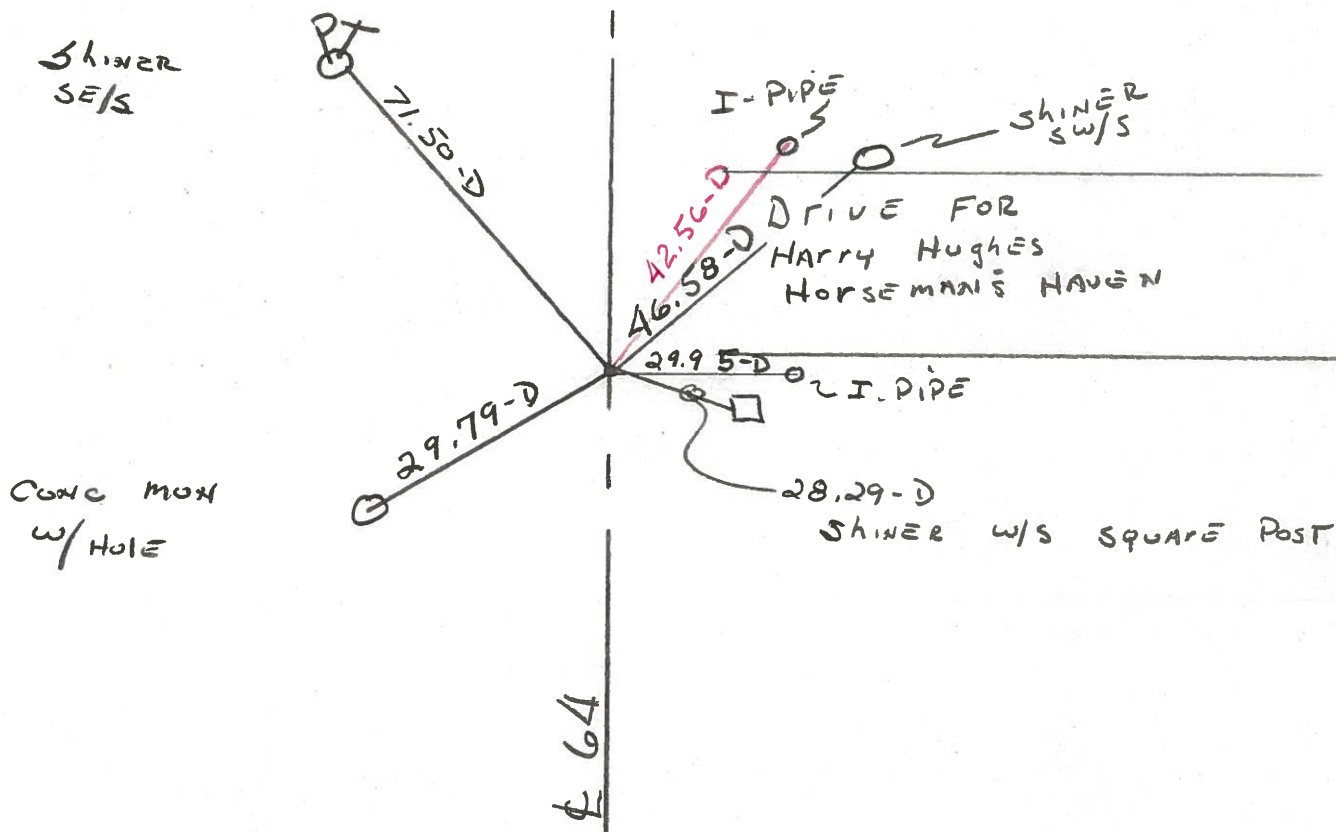 PT
Shiner
SE/S
71.50-D
I-PIPE
Shiner
SW/S
42.56-D
46.58-D
Drive For
Harry Hughes
Horseman's Haven
29.95-D
I.PIPE
29.79-D
Conc mon
w/Hole
28.29-D
Shiner w/s square Post
℄ 64